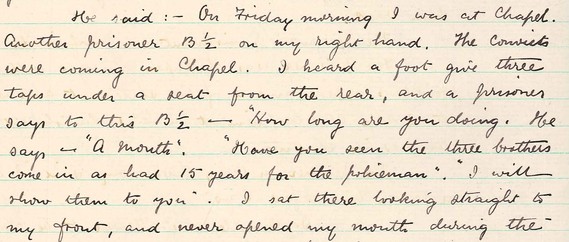 He said :- On Friday morning I was at Chapel.
Another prisoner B½ on my right hand. The Convicts
were coming in Chapel. I heard a foot give three
taps under a seat from the rear, and a prisoner
says to this B½ — "How long are you doing. He
says — "A Month". "Have you seen the three brothers
come in as had 15 years for the policeman". "I will
show them to you". I sat there looking straight to
my front, and never opened my mouth during the